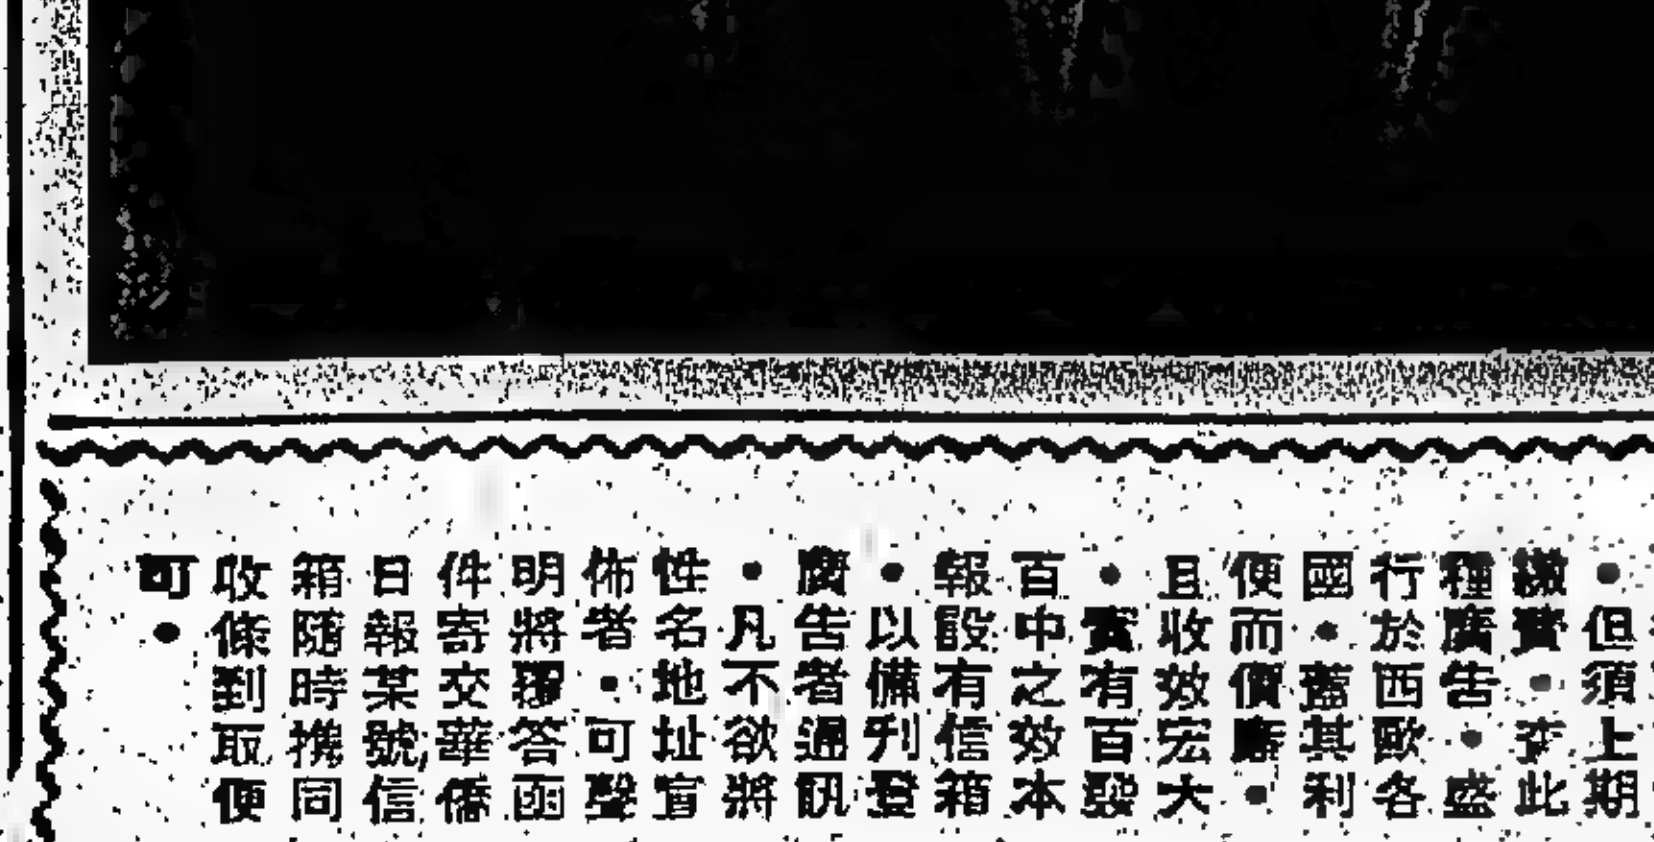 ●但須上期
繳費●查此
種廣告●盛
行於西歐各
國●蓋其利
便而價廉●
且收效宏大
●實有百發
百中之效本
報設有信箱
●以備刋登
廣告者通訊
●凡不欲將
性名地址宣
佈者●可聲
明將覆答函
件寄交華僑
日報某號信
箱隨時携同
收條到取便
可●